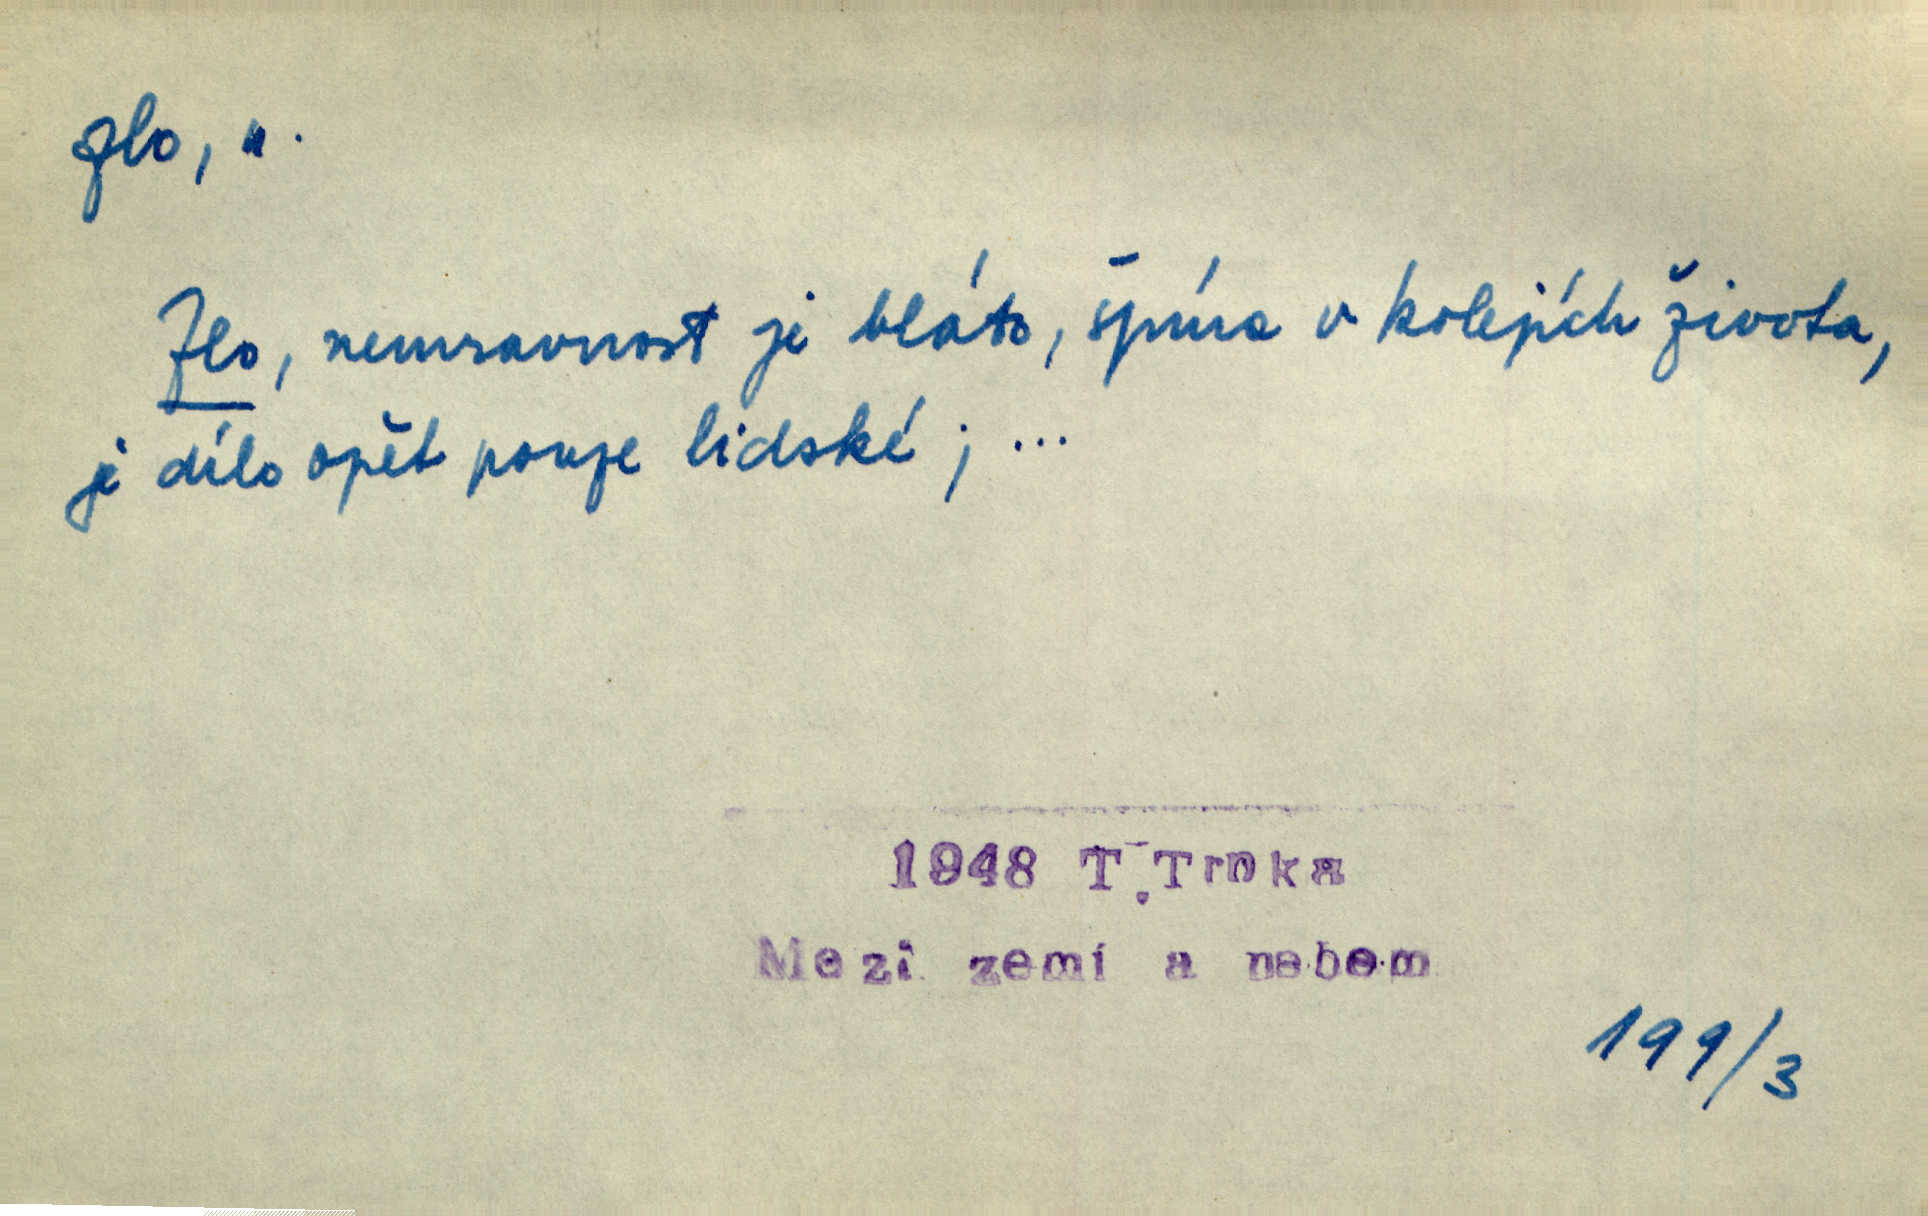 zlo, n.
Zlo, nemravnost je bláto, špína v kolejích života,
je dílo opět pouze lidské; ...
1948 T. Trnka
Mezi zemí a nebem
199/3